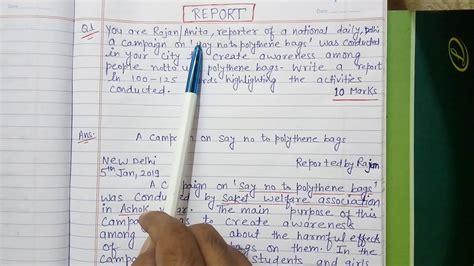 REPORT
Q.1 You are Rajan/Anita, reporter of a national daily, Delhi
a campaign on 'Say no to polythene bags' was conducted
in your city to create awareness among
people not to use polythene bags. Write a report
in 100-125 words highlighting the activities
conducted. 10 Marks
Ans: A Campaign on Say no to polythene bags
New Delhi Reported by Rajan
5th Jan, 2019
A Campaign on 'Say no to polythene bags'
was conducted by Saket welfare association
in Ashok The main purpose of this
Campaign to create awareness
among about the harmful effects
of bags on them. In the
Campaign students and girls